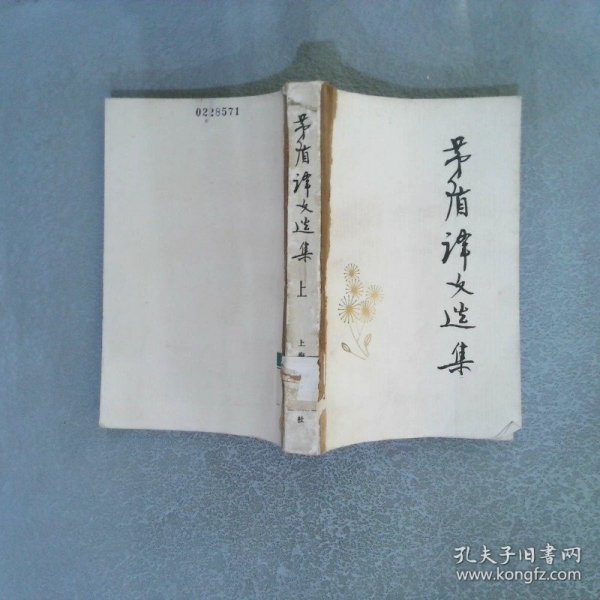 0228571
茅盾译文选集
上
上海
社
茅盾译文选集
孔夫子旧书网
www.kongfz.com